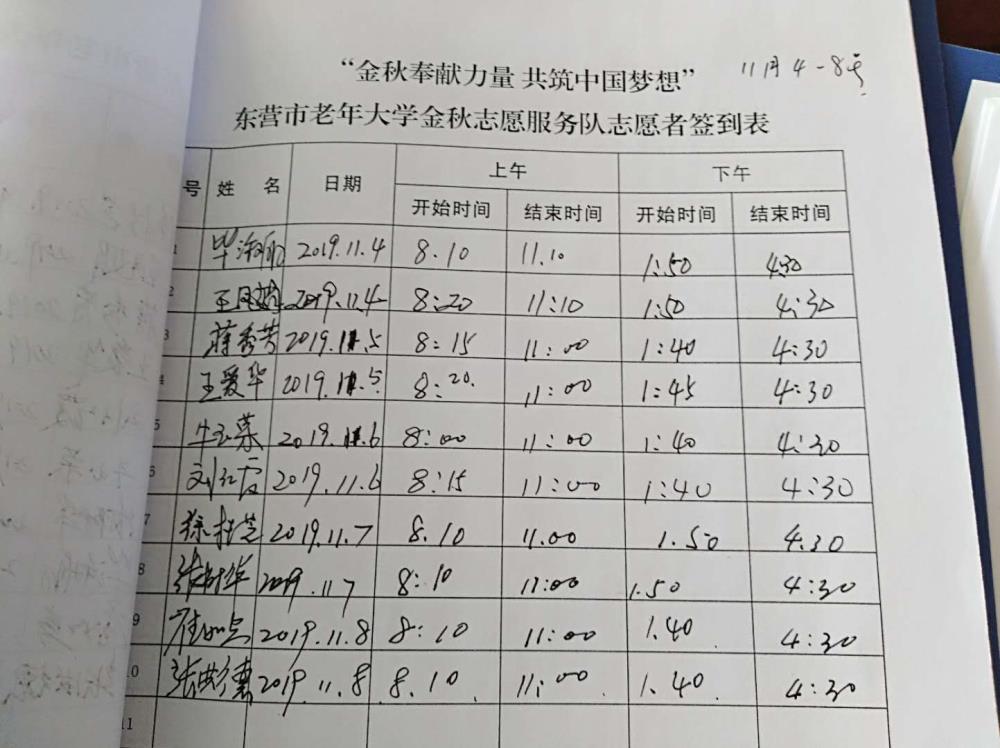 11月4-8号
“金秋奉献力量 共筑中国梦想”
东营市老年大学金秋志愿服务队志愿者签到表
号 姓 名 日期 上午 下午
开始时间 结束时间 开始时间 结束时间
2019.11.4 8.10 11.10 1:50 4:30
2 2019.11.4 8:20 11:10 1:50 4:30
3 蒋秀芳 2019.11.5 8:15 11:00 1:40 4:30
王爱华 2019.11.5 8:20. 11:00 1:45 4:30
5 牛玉慕 2019.11.6 8:00 11:00 1:40 4:30
6 刘红霞 2019.11.6 8:15 11:00 1:40 4:30
7 徐桂芝 2019.11.7 8.10 11.00 1.50 4:30
8 张树华 2019.11 7 8:10 11:00 1.50 4:30
9 2019.11.8 8:10 11:00 1.40 4:30
10 张彤惠 2019.11.8 8.10 11:00 1.40 4:30
11